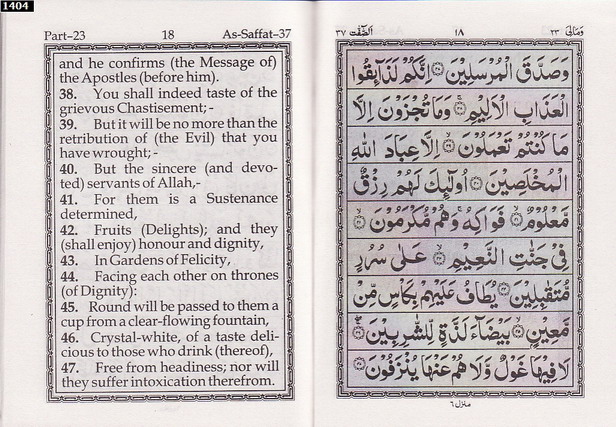 1404
Part-23 18 As-Saffat-37
and he confirms (the Message of)
the Apostles (before him).
38. You shall indeed taste of the
grievous Chastisement; -
39. But it will be no more than the
retribution of (the Evil) that you
have wrought; -
40. But the sincere (and devo-
ted) servants of Allah,-
41. For them is a Sustenance
determined,
42. Fruits (Delights); and they
(shall enjoy) honour and dignity,
43. In Gardens of Felicity,
44. Facing each other on thrones
(of Dignity):
45. Round will be passed to them a
cup from a clear-flowing fountain,
46. Crystal-white, of a taste deli-
cious to those who drink (thereof),
47. Free from headiness; nor will
they suffer intoxication therefrom.
وَمَالِىَ ٢٣ ١٨ اَلصّٰٓفّٰت ٣٧
وَصَدَّقَ الْمُرْسَلِيْنَ ﴿٣٧﴾ اِنَّكُمْ لَذَآئِقُوا
الْعَذَابِ الْاَلِيْمِ ﴿٣٨﴾ وَمَا تُجْزَوْنَ اِلَّا
مَا كُنْتُمْ تَعْمَلُوْنَ ﴿٣٩﴾ اِلَّا عِبَادَ اللّٰهِ
الْمُخْلَصِيْنَ ﴿٤٠﴾ اُولٰٓئِكَ لَهُمْ رِزْقٌ
مَّعْلُوْمٌ ﴿٤١﴾ فَوَاكِهُ وَهُمْ مُّكْرَمُوْنَ ﴿٤٢﴾
فِىْ جَنّٰتِ النَّعِيْمِ ﴿٤٣﴾ عَلٰى سُرُرٍ
مُّتَقٰبِلِيْنَ ﴿٤٤﴾ يُطَافُ عَلَيْهِمْ بِكَاْسٍ مِّنْ
مَّعِيْنٍ ﴿٤٥﴾ بَيْضَآءَ لَذَّةٍ لِّلشّٰرِبِيْنَ ﴿٤٦﴾
لَا فِيْهَا غَوْلٌ وَّلَا هُمْ عَنْهَا يُنْزَفُوْنَ ﴿٤٧﴾
منزل ٦